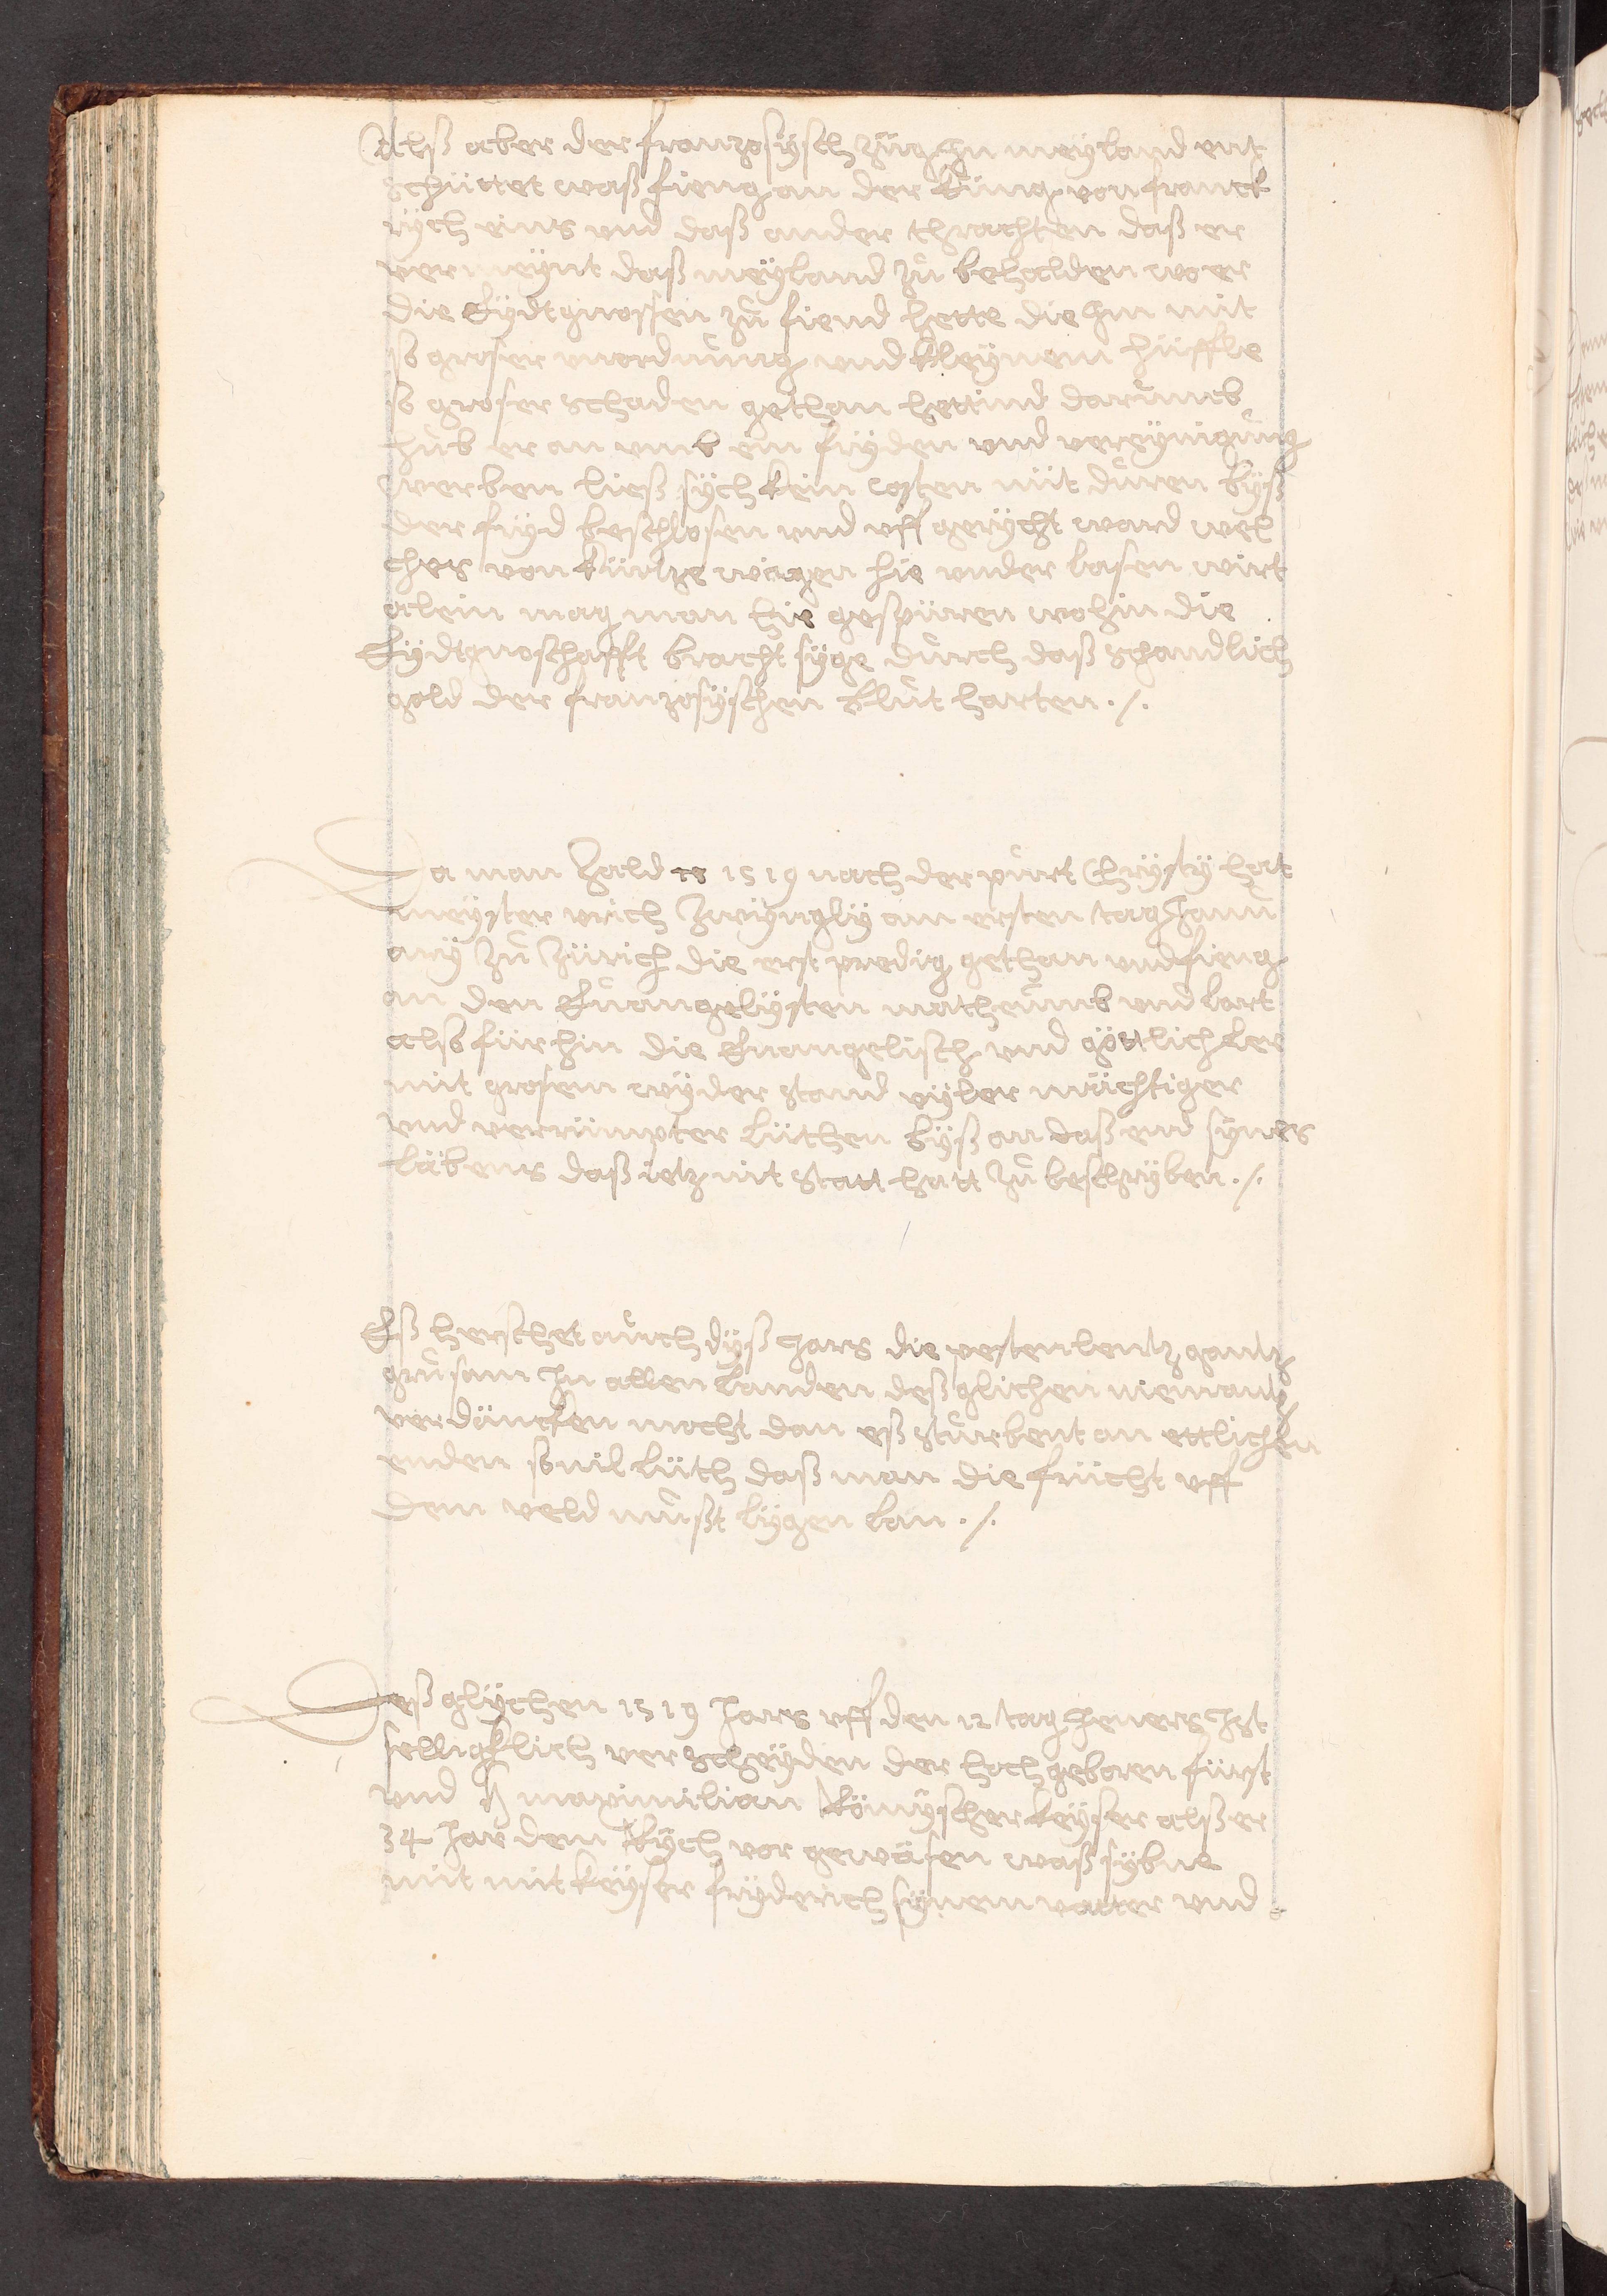 Alß aber der franzosysch züg Jn meyland ent
schüttet waß fieng an der Küng von franck
rych eins vnd daß ander thrachten daß er
vermeynt daß meyland zů behalden wo er
die Eydtgnossen zů fiend hette die Jm mit
so groser vnordnůng vnd kleynem hüffle
so groser schaden gethan hettind darůmb
hůb er an vmb ein fryden vnd vereynigůng
werben ließ sych kein costen nüt důren byß
der fryd beschlosen vnd vff gerycht ward wel
ches von kürtze wägen hie vnder lasen wirt
alein mag man hie gespüren wohin die
Eydtgnoschafft bracht syge důrch daß schandlich
gold der franzosyschen Blůt harten ./.
Da man Zald 1519 nach der pürt Christy hat
meyster vrich Zwyngly am ersten tag Janů
ary zů Zürich die erst predig gethan vnd fieng
an den Eůangelysten matheůmb vnd lart
also fürhin die Euangelisch vnd göttlich Ler
mit grosem wyder stand vyler mächtiger
vnd verrümpter lüthen byß an daß end synes
läbens daß ietz nit statt hatt zů beschryben ./.
Eß herschet aůch dyß Jars die pestenlentz gantz
grůsam Jn allen landen deß glichen niemantz
verdäncken mocht dan eß stůrbent an ettlichen
enden souil lüth daß man die frücht vff
dem veld můßt lygen lan ./.
Deß glychen 1519 Jars vff den 12 tag Jeners Jst
selligklich verscheyden der hochgeboren fürst
vnd H maximilian Römyscher keyser alß er
34 Jar dem Rych vor gewäsen waß sybne
mit mit keyser fryderich synem vatter vnd